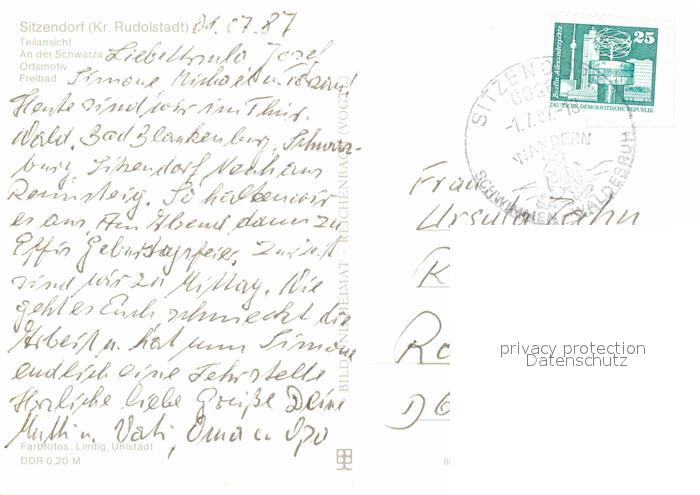 Sitzendorf (Kr. Rudolstadt)
Teilansicht
An der Schwarza
Ortsmotiv
Freibad
01.07.87
Liebe Ursula Josef
Simone Michael u.
Heute sind wir im Thür.
Wald. Bad Blankenburg, Schwarz-
burg, Sitzendorf Neuhaus
Rennsteig. So halten wir
es aus. Am Abend dann zu
Geburtstagsfeier. Zur Zeit
sind wir zu Mittag. Wie
geht es Euch schmeckt die
Arbeit u. hat nun Simone
endlich eine Lehrstelle
Herzliche liebe Grüße Deine
Mutti u. Vati, Oma u Opa
Farbfotos: Lindig, Uhlstädt
DDR 0,20 M
BILD UND HEIMAT · REICHENBACH (VOGTL)
SITZENDORF
-1.7.87-
WANDERN
SCHWIMMEN WALDESRUH
Berlin, Alexanderplatz
25
DEUTSCHE DEMOKRATISCHE REPUBLIK
Frau
Ursula Zahn
K
R
D6
privacy protection
Datenschutz